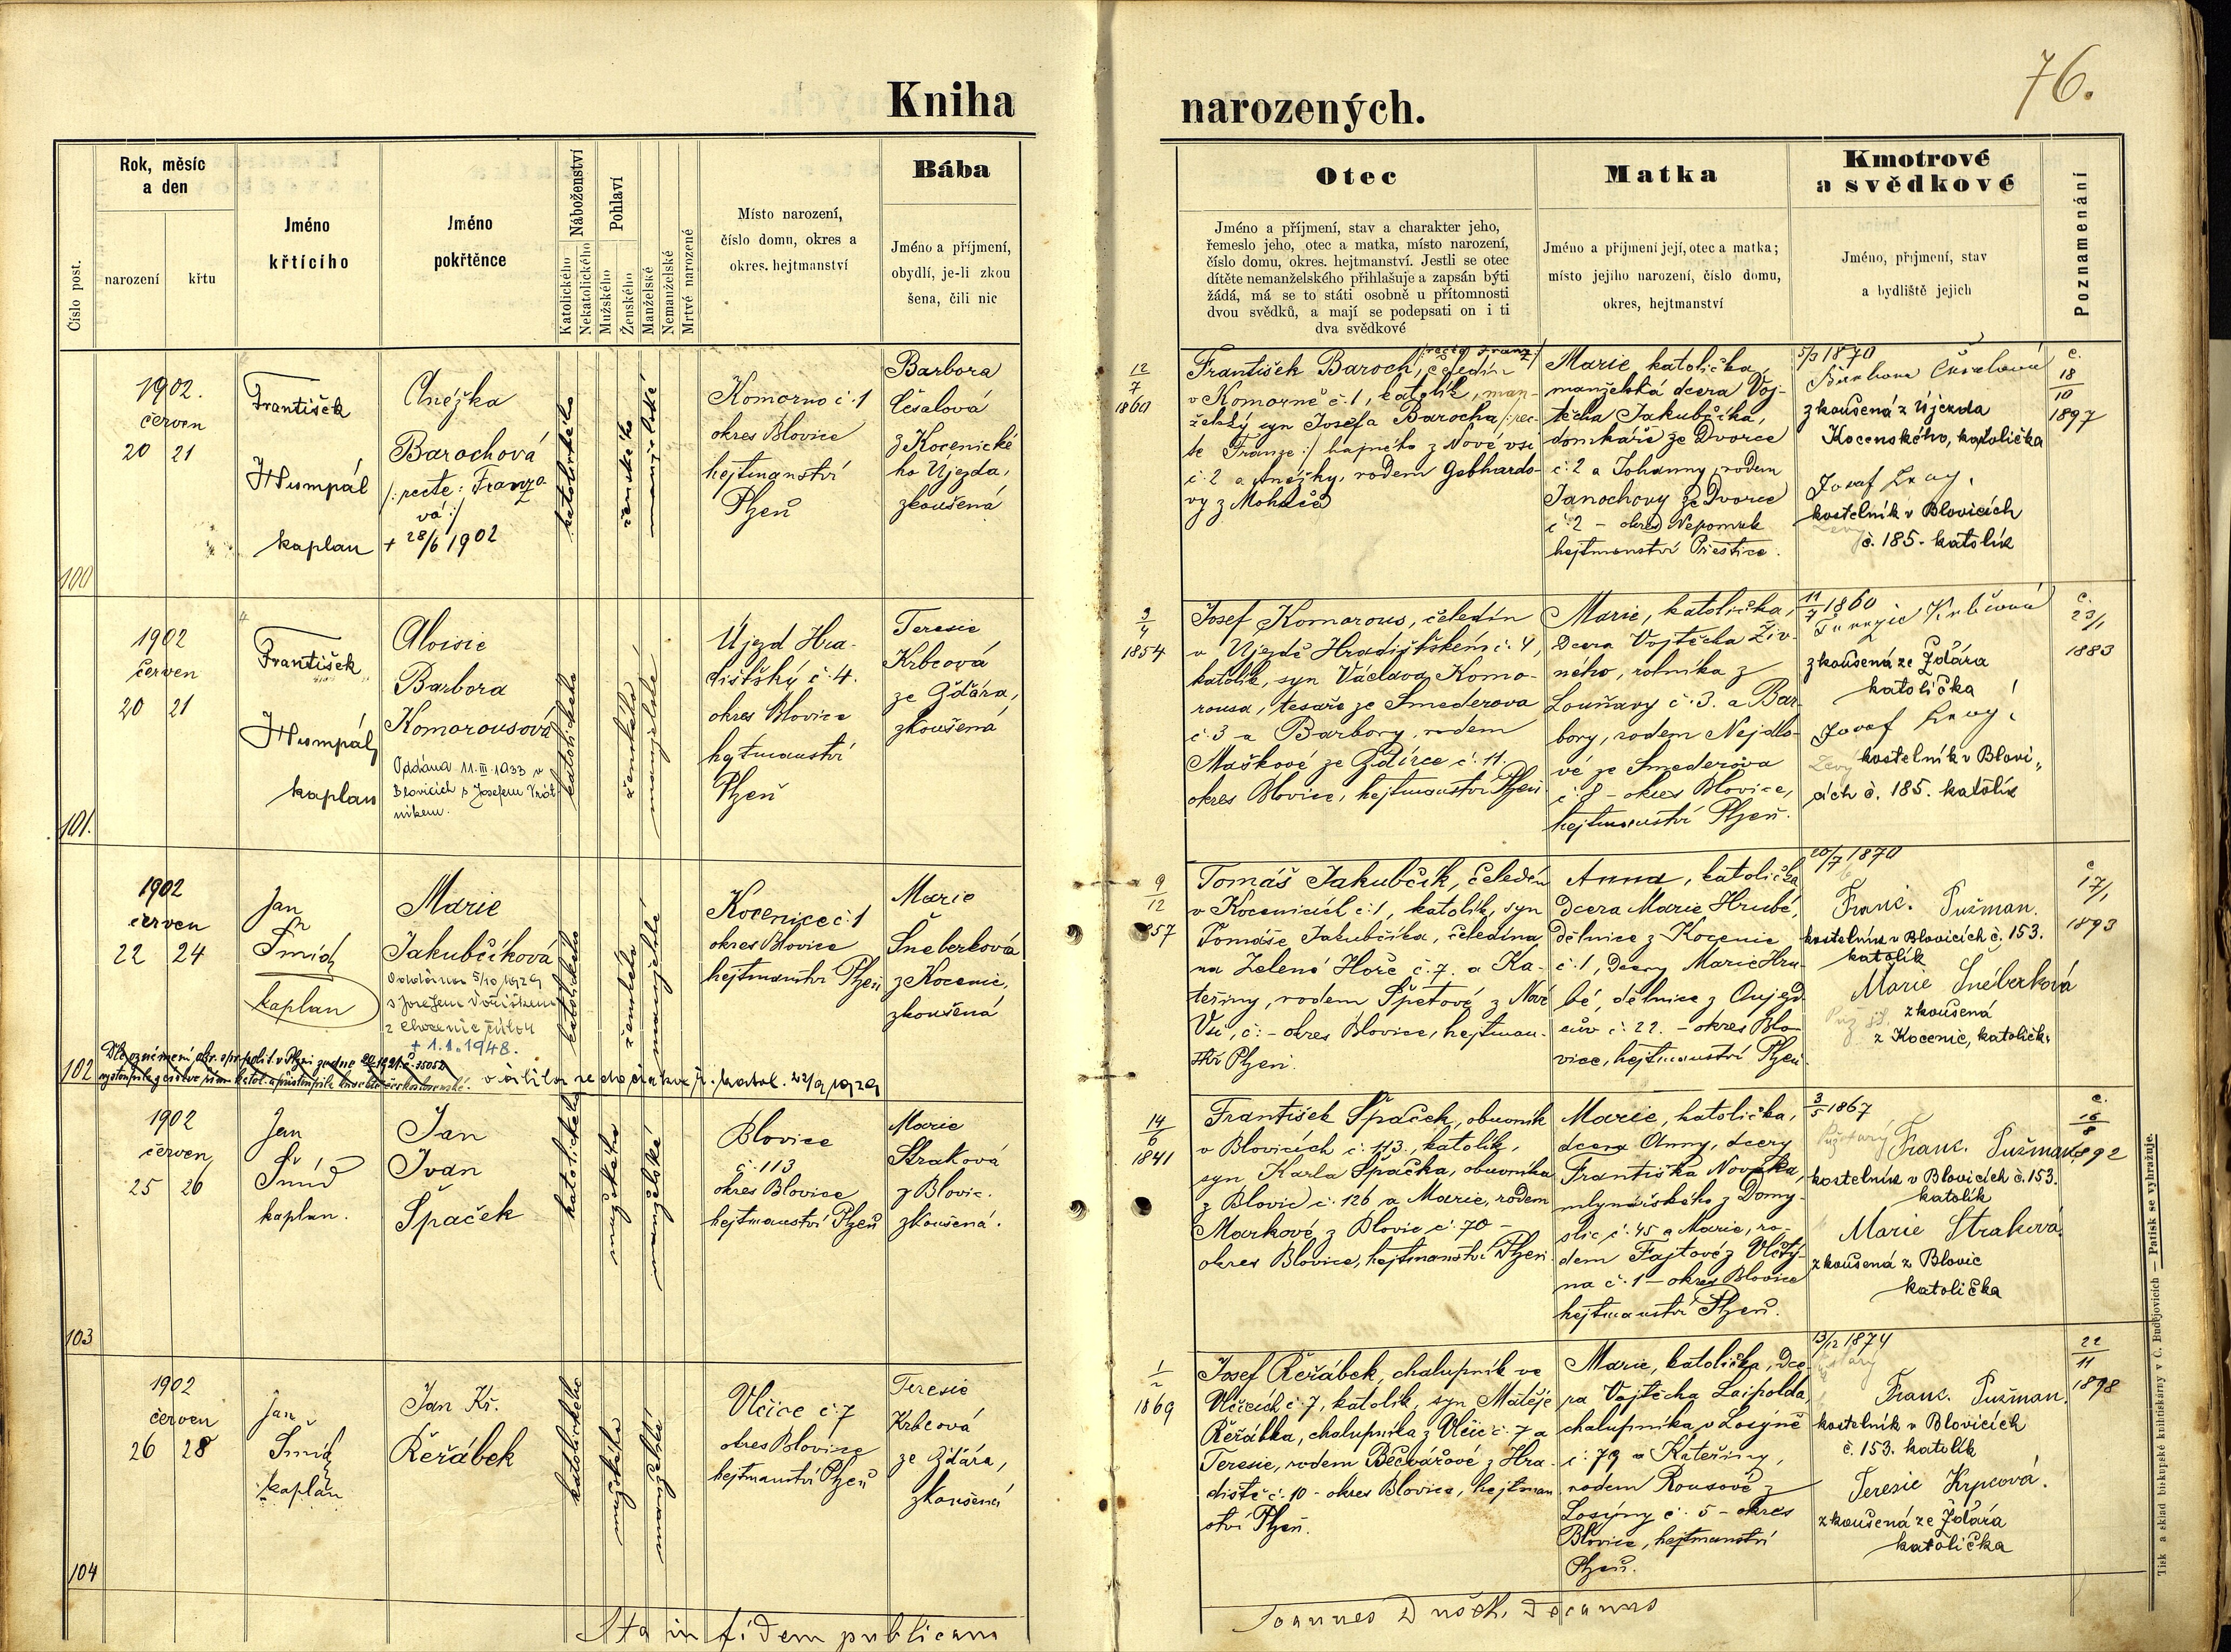 76.
Kniha
narozených.
Číslo post.
Rok, měsíc
a den
narození
křtu
Jméno
křtícího
Jméno
pokřtěnce
Náboženství
Katolického
Nekatolického
Pohlaví
Mužského
Ženského
Manželské
Nemanželské
Mrtvé narozené
Místo narození,
číslo domu, okres a
okres. hejtmanství
Bába
Jméno a příjmení,
obydlí, je-li zkou
šena, čili nic
Otec
Jméno a příjmení, stav a charakter jeho,
řemeslo jeho, otec a matka, místo narození,
číslo domu, okres. hejtmanství. Jestli se otec
dítěte nemanželského přihlašuje a zapsán býti
žádá, má se to státi osobně u přítomnosti
dvou svědků, a mají se podepsati on i ti
dva svědkové
Matka
Jméno a příjmení její, otec a matka;
místo jejího narození, číslo domu,
okres, hejtmanství
Kmotrové
a svědkové
Jméno, příjmení, stav
a bydliště jejich
Poznamenání
100
1902.
červen
20 21
František
Humpál
kaplan
Anežka
Barochová
/: recte: Franzo
vá :/
+ 28/6 1902
katolického
ženského
manželské
Komorno č. 1
okres Blovice
hejtmanství
Plzeň
Barbora
Česalová
z Kocenické
ho Újezda,
zkoušená
12
7
1860
František Baroch, /recte Franz/ čeledín
v Komorně č. 1, katolík, man-
želský syn Josefa Barocha /: rec-
te Franze :/ hajného z Nové vsi
č. 2 a Anežky, rodem Gebhardo-
vy z
Marie katolička,
manželská dcera Voj-
těcha Jakubčíka,
domkáře ze Dvorce
č. 2 a Johanny, rodem
Janochovy ze Dvorce
č. 2 - okres Nepomuk
hejtmanství Přestice.
5/3 1870
Barbora Česalová
zkoušená z Újezda
Kocenského, katolička
Josef Levý,
kostelník v Blovicích
č. 185. katolík
c.
18
10
1897
101.
1902
červen
20 21
František
Humpál
kaplan
Aloisie
Barbora
Komorousová
Oddána 11. III. 1933 v
Blovicích s Josefem Vrát
níkem.
katolického
ženského
manželské
Újezd Hra-
dištský č. 4.
okres Blovice
hejtmanství
Plzeň
Teresie
Krbcová
ze Ždára,
zkoušená
3
4
1854
Josef Komorous, čeledín
v Újezdě Hradištském č. 4,
katolík, syn Václava Komo-
rousa, tesaře ze Smederova
č. 3 a Barbory, rodem
Maškové ze Ždírce č. 11.
okres Blovice, hejtmanství Plzeň
Marie, katolička,
dcera Vojtěcha Živ-
ného, rolníka z
Louňavy č. 3. a Bar-
bory, rodem Nejdlo-
vé ze Smederova
č. 8 - okres Blovice,
hejtmanství Plzeň.
11
7 1860
Terezie Krbcová
zkoušená ze Ždára
katolička
Josef Levý,
Levý kostelník v Blovi„
cích č. 185. katolík
c.
23/1
1883
102
1902
červen
22 24
Jan
Šmíd
kaplan
Marie
Jakubčíková
Oddána 5/10 1929
s Josefem Voříškem
z Chocenic
+ 1.1.1948.
Dle oznámení okr. spr. polit. v Plzni
vystoupila z církve řím. katol. a přistoupila k církvi československé. vrátila se do církve ř. katol. 22/9 1929
katolického
ženského
manželské
Kocenice č. 1
okres Blovice
hejtmanství Plzeň
Marie
Šneberková
z Kocenic,
zkoušená
9
12
857
Tomáš Jakubčík, čeledín
v Kocenicích č. 1, katolík, syn
Tomáše Jakubčíka, čeledína
na Zelené Hoře č. 7. a Ka-
teřiny, rodem Špetové z Nové
Vsi, č. - okres Blovice, hejtman-
ství Plzeň.
Anna, katolička
dcera Marie Hrubé,
dělnice z Kocenic
č. 1, dcery Marie Hru-
bé, dělnice z Aujez-
č. 22. - okres Blo-
vice, hejtmanství Plzeň
20/7 1870
Franc. Pužman.
kostelník v Blovicích č. 153.
katolík
Marie Šnéberková
zkoušená
z Kocenic, katoličk.
c.
17/1
1893
103
1902
červen
25 26
Jan
Šmíd
kaplan.
Jan
Ivan
Špaček
katolického
mužského
manželské
Blovice
č. 113
okres Blovice
hejtmanství Plzeň
Marie
Straková
z Blovic.
zkoušená.
14
6
1841
František Špaček, obuvník
v Blovicích č. 113., katolík,
syn Karla Špačka, obuvníka
z Blovic č. 126 a Marie, rodem
Markové z Blovic č. 70 -
okres Blovice, hejtmanství Plzeň
Marie, katolička,
dcera Anny, dcery
Františka Nováka,
mlynářského z Domy-
slic č. 45 a Marie, ro-
dem Fajtové z Vlčtý-
na č. 1 - okres Blovice
hejtmanství Plzeň.
3
5 1867
Franc. Pužman.
kostelník v Blovicích č. 153.
katolík
Marie Straková.
zkoušená z Blovic
katolička
c.
16
1892
104
1902
červen
26 28
Jan
Šmíd
kaplan
Jan Kř.
Řeřábek
katolického
mužského
manželské
Vlčice č. 7
okres Blovice
hejtmanství Plzeň
Teresie
Krbcová
ze Ždára,
zkoušená
1
2
1869
Josef Řeřábek, chalupník ve
Vlčicích č. 7, katolík, syn Matěje
Řeřábka, chalupníka z Vlčic č. 7 a
Teresie, rodem Bečvářové z Hra-
diště č. 10 - okres Blovice, hejtman
ství Plzeň.
Marie, katolička, dce-
ra Vojtěcha Laipolda,
chalupníka v Losyně
č. 79 a Kateřiny,
rodem Rousové z
Losyny č. 5 - okres
Blovice, hejtmanství
Plzeň.
13/12 1874
Franc. Pužman.
kostelník v Blovicích
č. 153. katolík
Terezie Krpcová.
zkoušená ze Ždára
katolička
22
11
1898
Ita in fidem publicam
Joannes Dušek, Decanus
Tisk a sklad biskupské knihtiskárny v Č. Budějovicích — Patisk se vyhražuje.